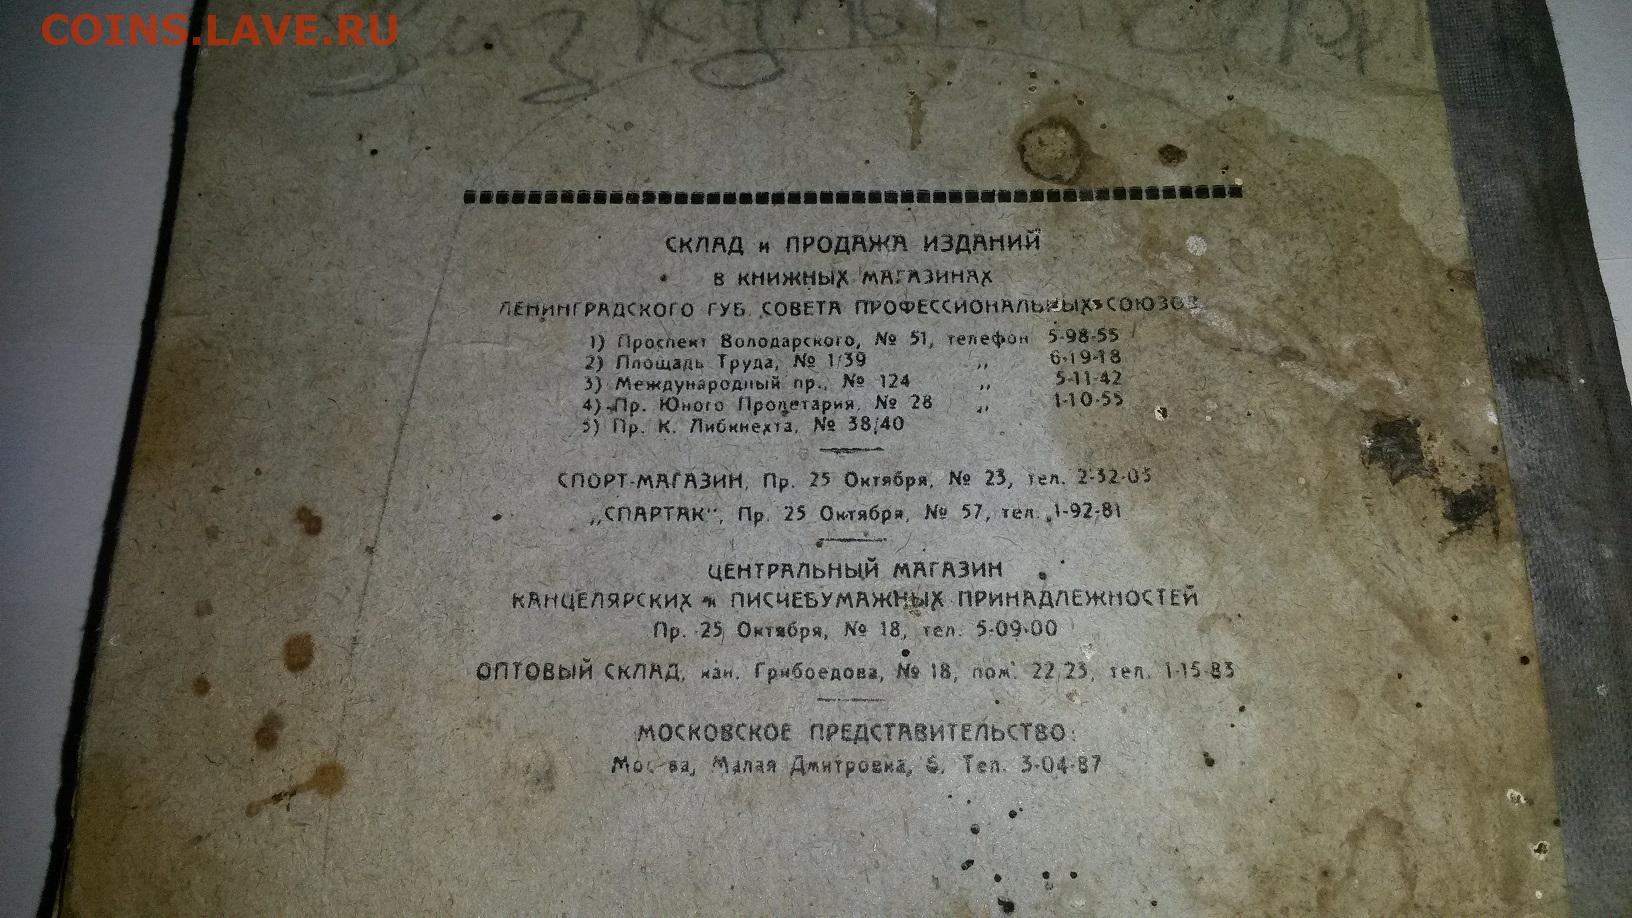 COINS.LAVE.RU
СКЛАД и ПРОДАЖА ИЗДАНИЙ
В КНИЖНЫХ МАГАЗИНАХ
ЛЕНИНГРАДСКОГО ГУБ. СОВЕТА ПРОФЕССИОНАЛЬНЫХ СОЮЗОВ
1) Проспект Володарского, № 51, телефон 5-98-55
2) Площадь Труда, № 1/39 „ 6-19-18
3) Международный пр., № 124 „ 5-11-42
4) Пр. Юного Пролетария, № 28 „ 1-10-55
5) Пр. К. Либкнехта, № 38/40
СПОРТ-МАГАЗИН, Пр. 25 Октября, № 23, тел. 2-32-03
„СПАРТАК“, Пр. 25 Октября, № 57, тел. 1-92-81
ЦЕНТРАЛЬНЫЙ МАГАЗИН
КАНЦЕЛЯРСКИХ и ПИСЧЕБУМАЖНЫХ ПРИНАДЛЕЖНОСТЕЙ
Пр. 25 Октября, № 18, тел. 5-09-00
ОПТОВЫЙ СКЛАД, кан. Грибоедова, № 18, пом. 22/23, тел. 1-15-83
МОСКОВСКОЕ ПРЕДСТАВИТЕЛЬСТВО:
Москва, Малая Дмитровка, 6. Тел. 3-04-87